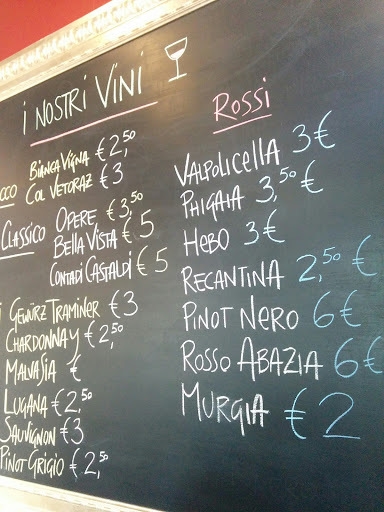 i NOSTRI VINI
BIANCA VIGNA € 2,50
CCO COL VETORAZ € 3
OPERE € 3,50
CLASSICO BELLA VISTA € 5
CONTADI CASTALDI € 5
i GEWÜRZ TRAMINER € 3
CHARDONNAY € 2,50
MALVASIA €
LUGANA € 2,50
SAUVIGNON € 3
PINOT GRIGIO € 2,50
ROSSI
VALPOLICELLA 3 €
PHIGAIA 3,50 €
HEBO 3 €
RECANTINA 2,50 €
PINOT NERO 6 €
ROSSO ABAZIA 6 €
MURGIA € 2